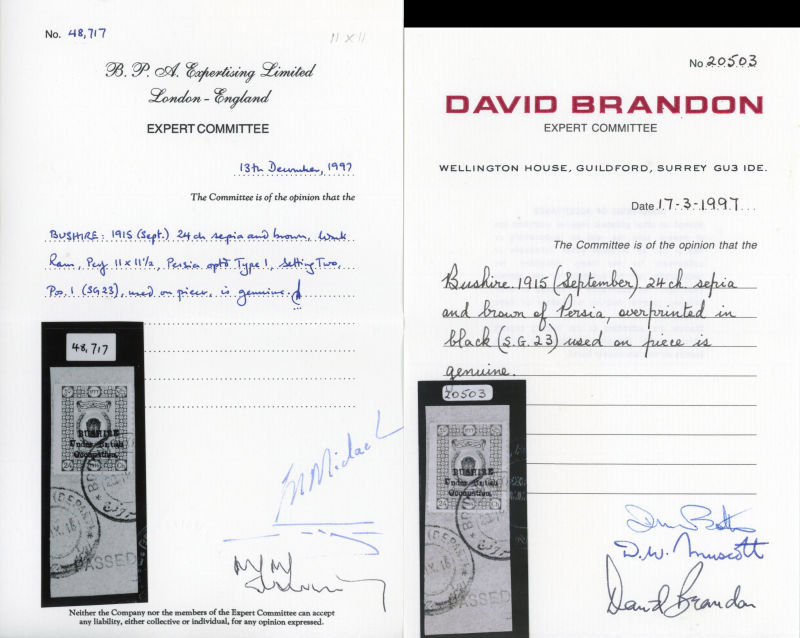 No. 48,717
11 x 11
B. P. A. Expertising Limited
London - England
EXPERT COMMITTEE
13th December, 1997
The Committee is of the opinion that the
BUSHIRE: 1915 (Sept.) 24 ch sepia and brown, wmk
Ram, Perf 11 x 11½, Persia optd Type 1, Setting Two,
Pos. 1 (SG 23), used on piece, is genuine.
48,717
BUSHIRE
Under British
Occupation.
PASSED
Neither the Company nor the members of the Expert Committee can accept
any liability, either collective or individual, for any opinion expressed.
No 20503
DAVID BRANDON
EXPERT COMMITTEE
WELLINGTON HOUSE, GUILDFORD, SURREY GU3 IDE.
Date 17-3-1997
The Committee is of the opinion that the
Bushire. 1915 (September) 24 ch. sepia
and brown of Persia, overprinted in
black (S.G. 23) used on piece is
genuine.
20503
BUSHIRE
Under British
Occupation.
PASSED
D.W. Muscott
David Brandon